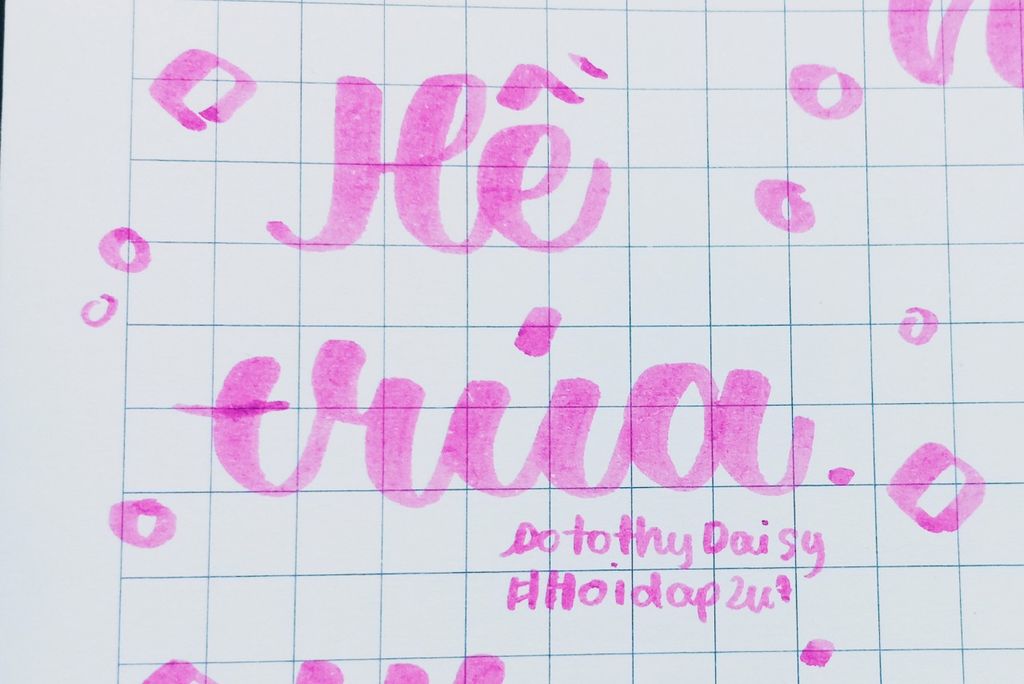 Hề
trúa.
DotothyDaisy
#Hoidap247